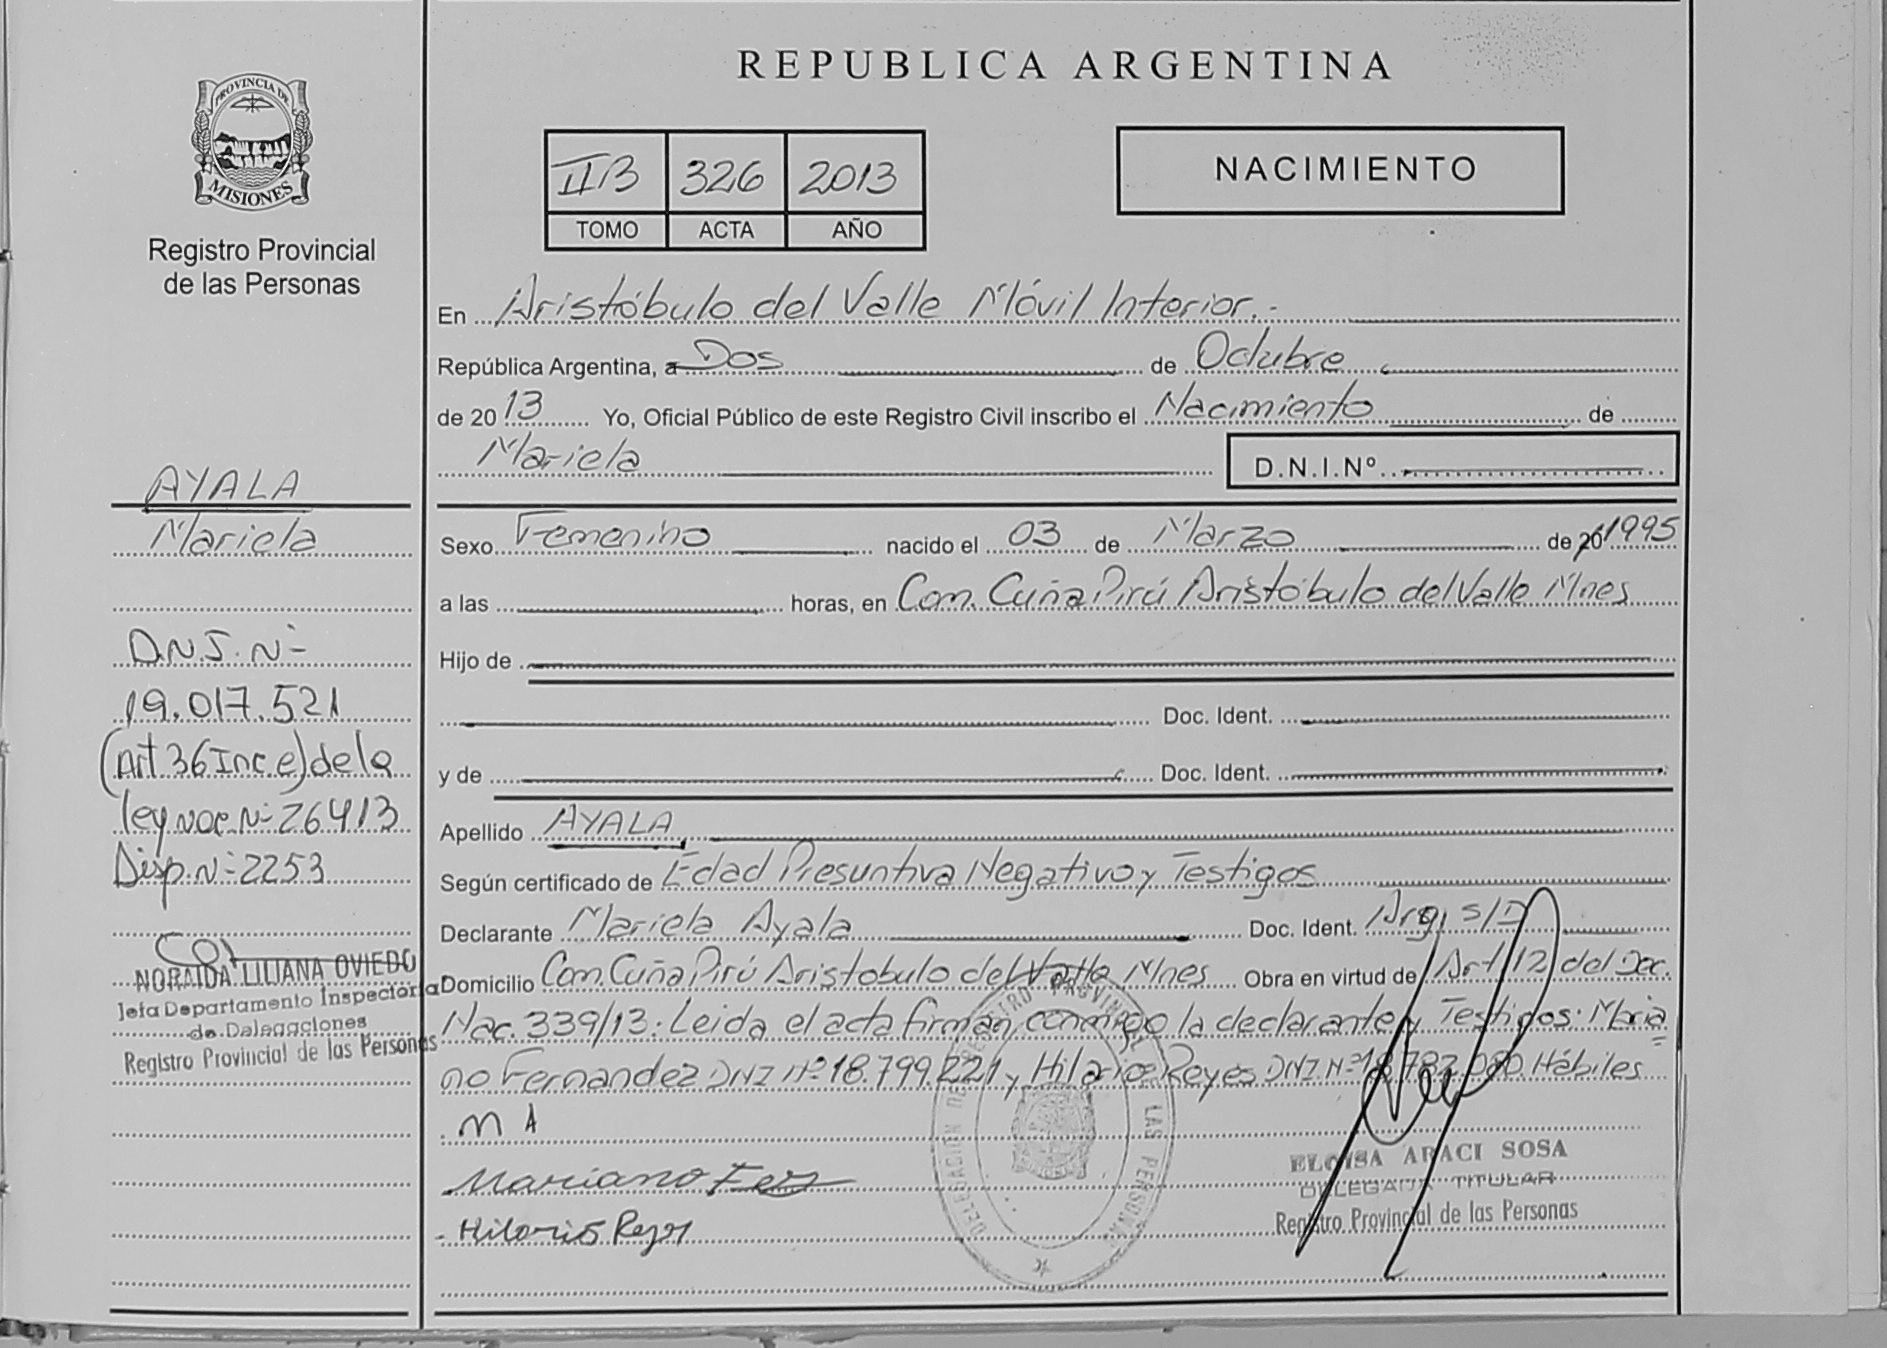 REPUBLICA ARGENTINA
PROVINCIA DE
MISIONES
Registro Provincial
de las Personas
II B 326 2013
TOMO ACTA AÑO
NACIMIENTO
En Aristóbulo del Valle Móvil Interior.-
República Argentina, a Dos de Octubre
de 2013 Yo, Oficial Público de este Registro Civil inscribo el Nacimiento de
Mariela D.N.I.Nº
Sexo Femenino nacido el 03 de Marzo de 20 1995
a las horas, en Com. Cuña Pirú Aristóbulo del Valle Mnes
Hijo de
Doc. Ident.
y de Doc. Ident.
Apellido AYALA
Según certificado de Edad Presuntiva Negativo y Testigos
Declarante Mariela Ayala Doc. Ident. Arg. S/D
Domicilio Com. Cuña Pirú Aristobulo del Valle Mnes Obra en virtud de Art 12 del Dec.
Nac. 339/13: Leida el acta firman conmigo la declarante y Testigos: Maria
no Fernandez DNI Nº 18.799.221 y Hilario Reyes DNI Nº 18.782.080. Hábiles
M A
Mariano
Hilario Reyes
DELEGACIÓN DEL REGISTRO PROVINCIAL DE LAS PERSONAS
ELOISA ARACI SOSA
DELEGADA TITULAR
Registro Provincial de las Personas
AYALA
Mariela
D.N.I. Nº
19.017.521
(Art 36 Inc.e) de la
ley Nac. Nº 26413
Disp. Nº 2253
NORAIDA LILIANA OVIEDO
Jefa Departamento Inspectoria
de Delegaciones
Registro Provincial de las Personas